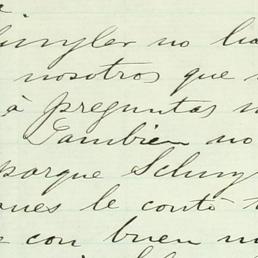 Schuyler no ha
nosotros que
à preguntas
Tambien no
porque Schuy
ones le contó
con buen